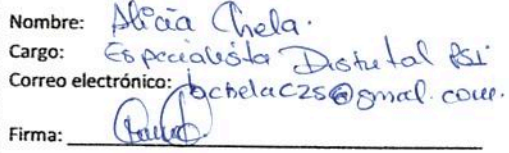 Nombre: Alicia Chela.
Cargo: Especialista Distrital PSI
Correo electrónico: bchelac25@gmail.com.
Firma: